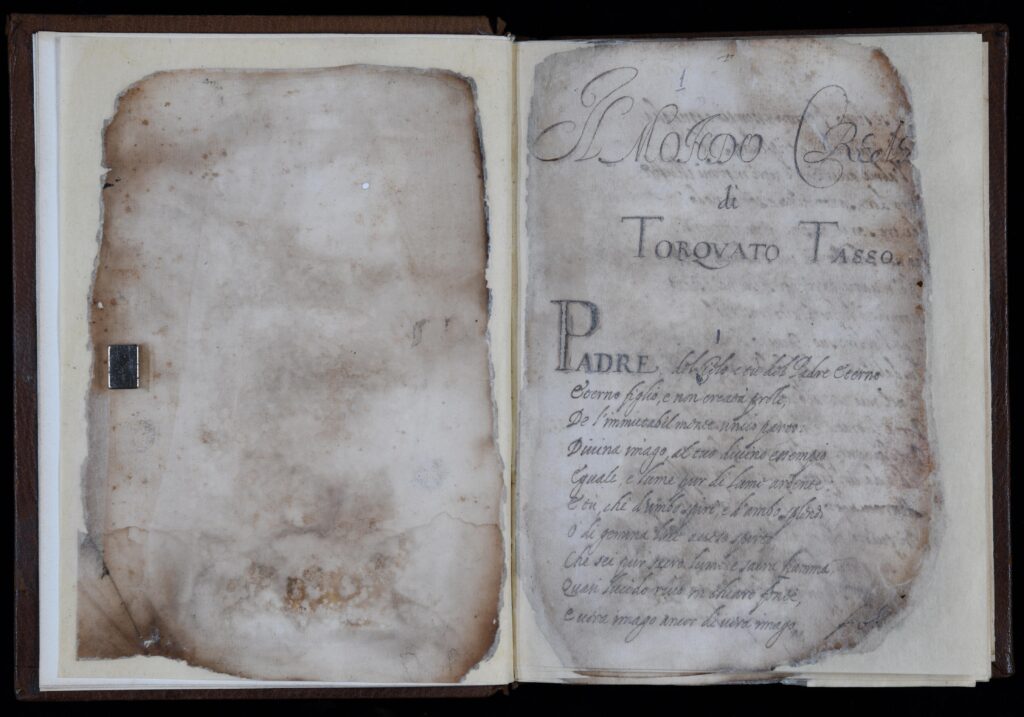 1
Il MONDO CREATO
di
TORQVATO TASSO.
1
PADRE, del Cielo e tu del Padre Eterno
Eterno figlio, e non creata prole,
De l'immutabil mente unico parto.
Divina imago, al tuo divino essempio
Eguale, e lume pur di lume ardente.
E tu, che d'ambo spiri, e d'ambo splendi
O di gemina luce
Che sei pur sacro lume e sacra fiamma
Quasi lucido rivo in chiaro fonte,
e vera imago ancor di vera imago,